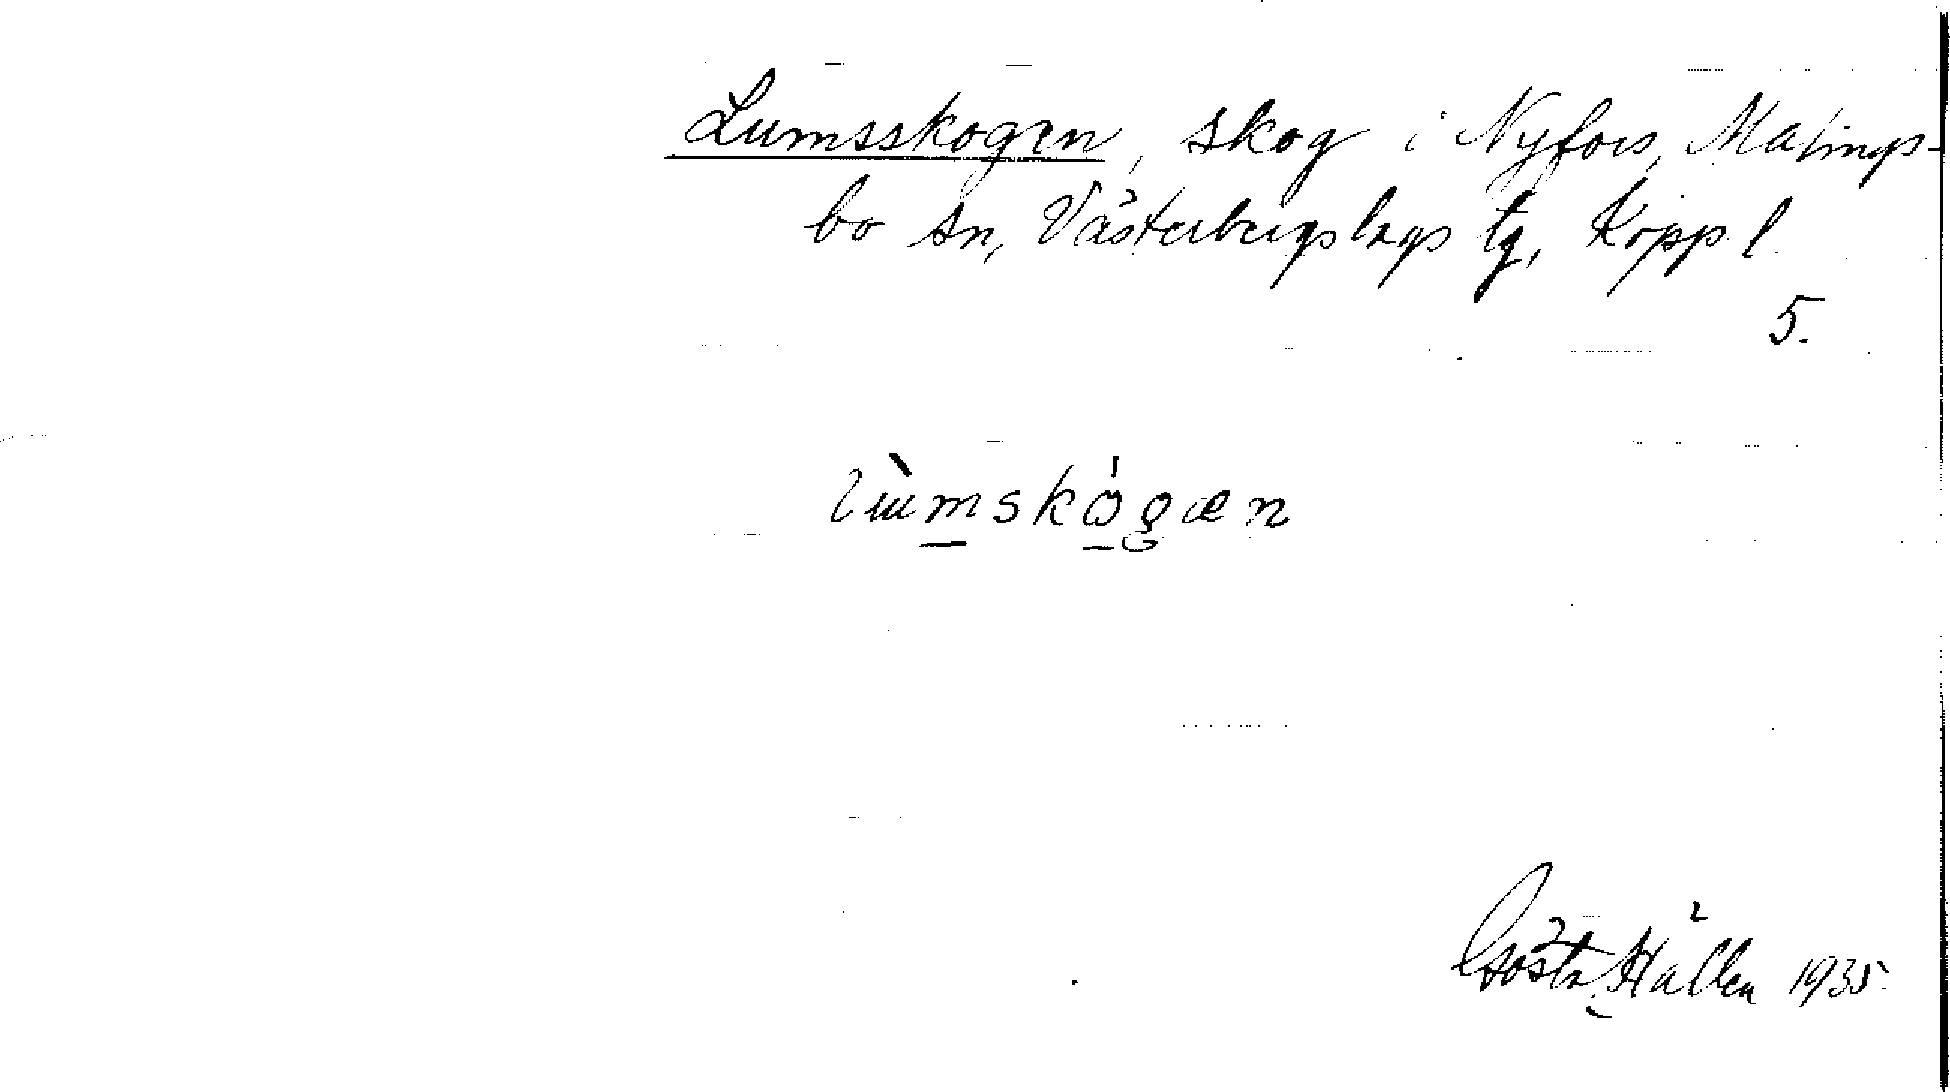 Lumsskogen, skog i Nyfors, Malings-
bo sn, Västerbergslags tg, Kopp. l
5.
lùmskógæn
Gösta Hällen 1935.